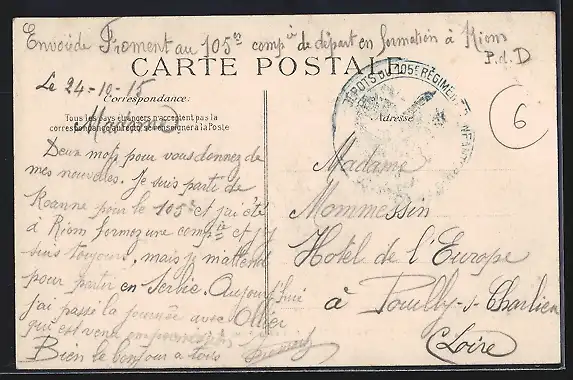 Envoi de Froment au 105e compie de départ en formation à Riom
P. d. D
CARTE POSTALE
Le 24-10-15
Correspondance.
Tous les pays étrangers n'acceptent pas la
correspondance au recto, se renseigner à la Poste
Madame
Deux mots pour vous donnez de
mes nouvelles. Je suis parti de
Roanne pour le 105e et j'ai été
à Riom formez une compie et j'y
suis toujours, mais je m'attend
pour partir en Serbie. Aujourd'hui
j'ai passé la journée avec Ollier
qui est venu en permission
Bien le bonjour a tous
Froment
DÉPOTS DU 105E RÉGIMENT D'INFANTERIE
Adresse
6
Madame
Mommessin
Hotel de l'Europe
à Pouilly-s-Charlieu
(Loire)